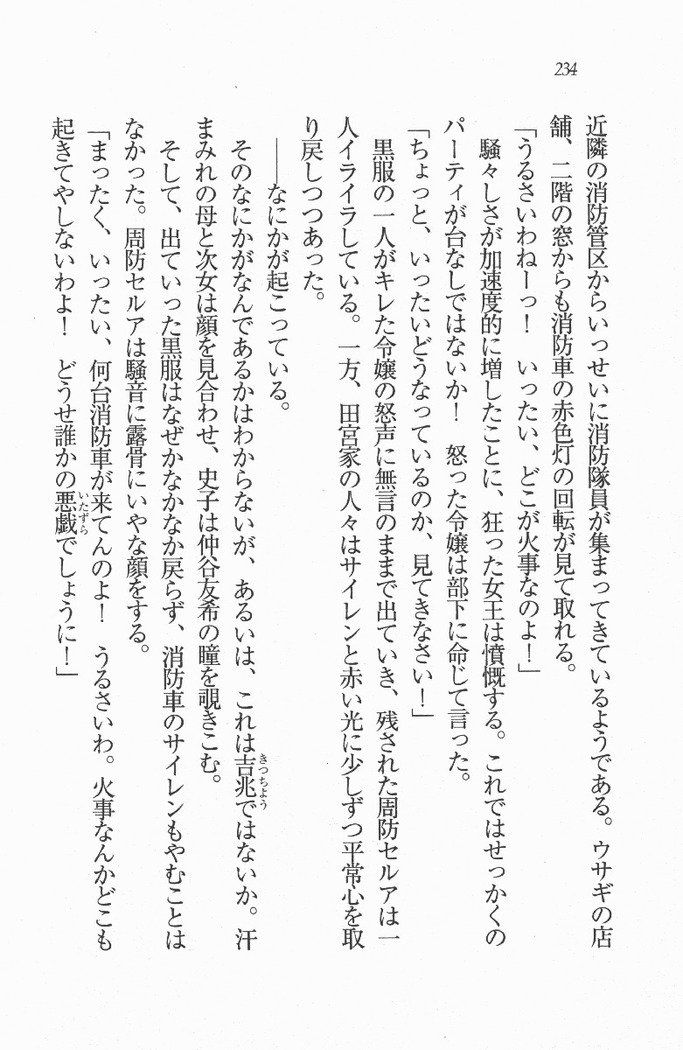 234
近隣の消防管区からいっせいに消防隊員が集まってきているようである。ウサギの店
舗、二階の窓からも消防車の赤色灯の回転が見て取れる。
「うるさいわねーっ！　いったい、どこが火事なのよ！」
　騒々しさが加速度的に増したことに、狂った女王は憤慨する。これではせっかくの
パーティが台なしではないか！　怒った令嬢は部下に命じて言った。
「ちょっと、いったいどうなっているのか、見てきなさい！」
　黒服の一人がキレた令嬢の怒声に無言のままで出ていき、残された周防セルアは一
人イライラしている。一方、田宮家の人々はサイレンと赤い光に少しずつ平常心を取
り戻しつつあった。
　――なにかが起こっている。
　そのなにかがなんであるかはわからないが、あるいは、これは吉兆ではないか。汗
きつちよう
まみれの母と次女は顔を見合わせ、史子は仲谷友希の瞳を覗きこむ。
　そして、出ていった黒服はなぜかなかなか戻らず、消防車のサイレンもやむことは
なかった。周防セルアは騒音に露骨にいやな顔をする。
「まったく、いったい、何台消防車が来てんのよ！　うるさいわ。火事なんかどこも
起きてやしないわよ！　どうせ誰かの悪戯でしょうに！」
いたずら